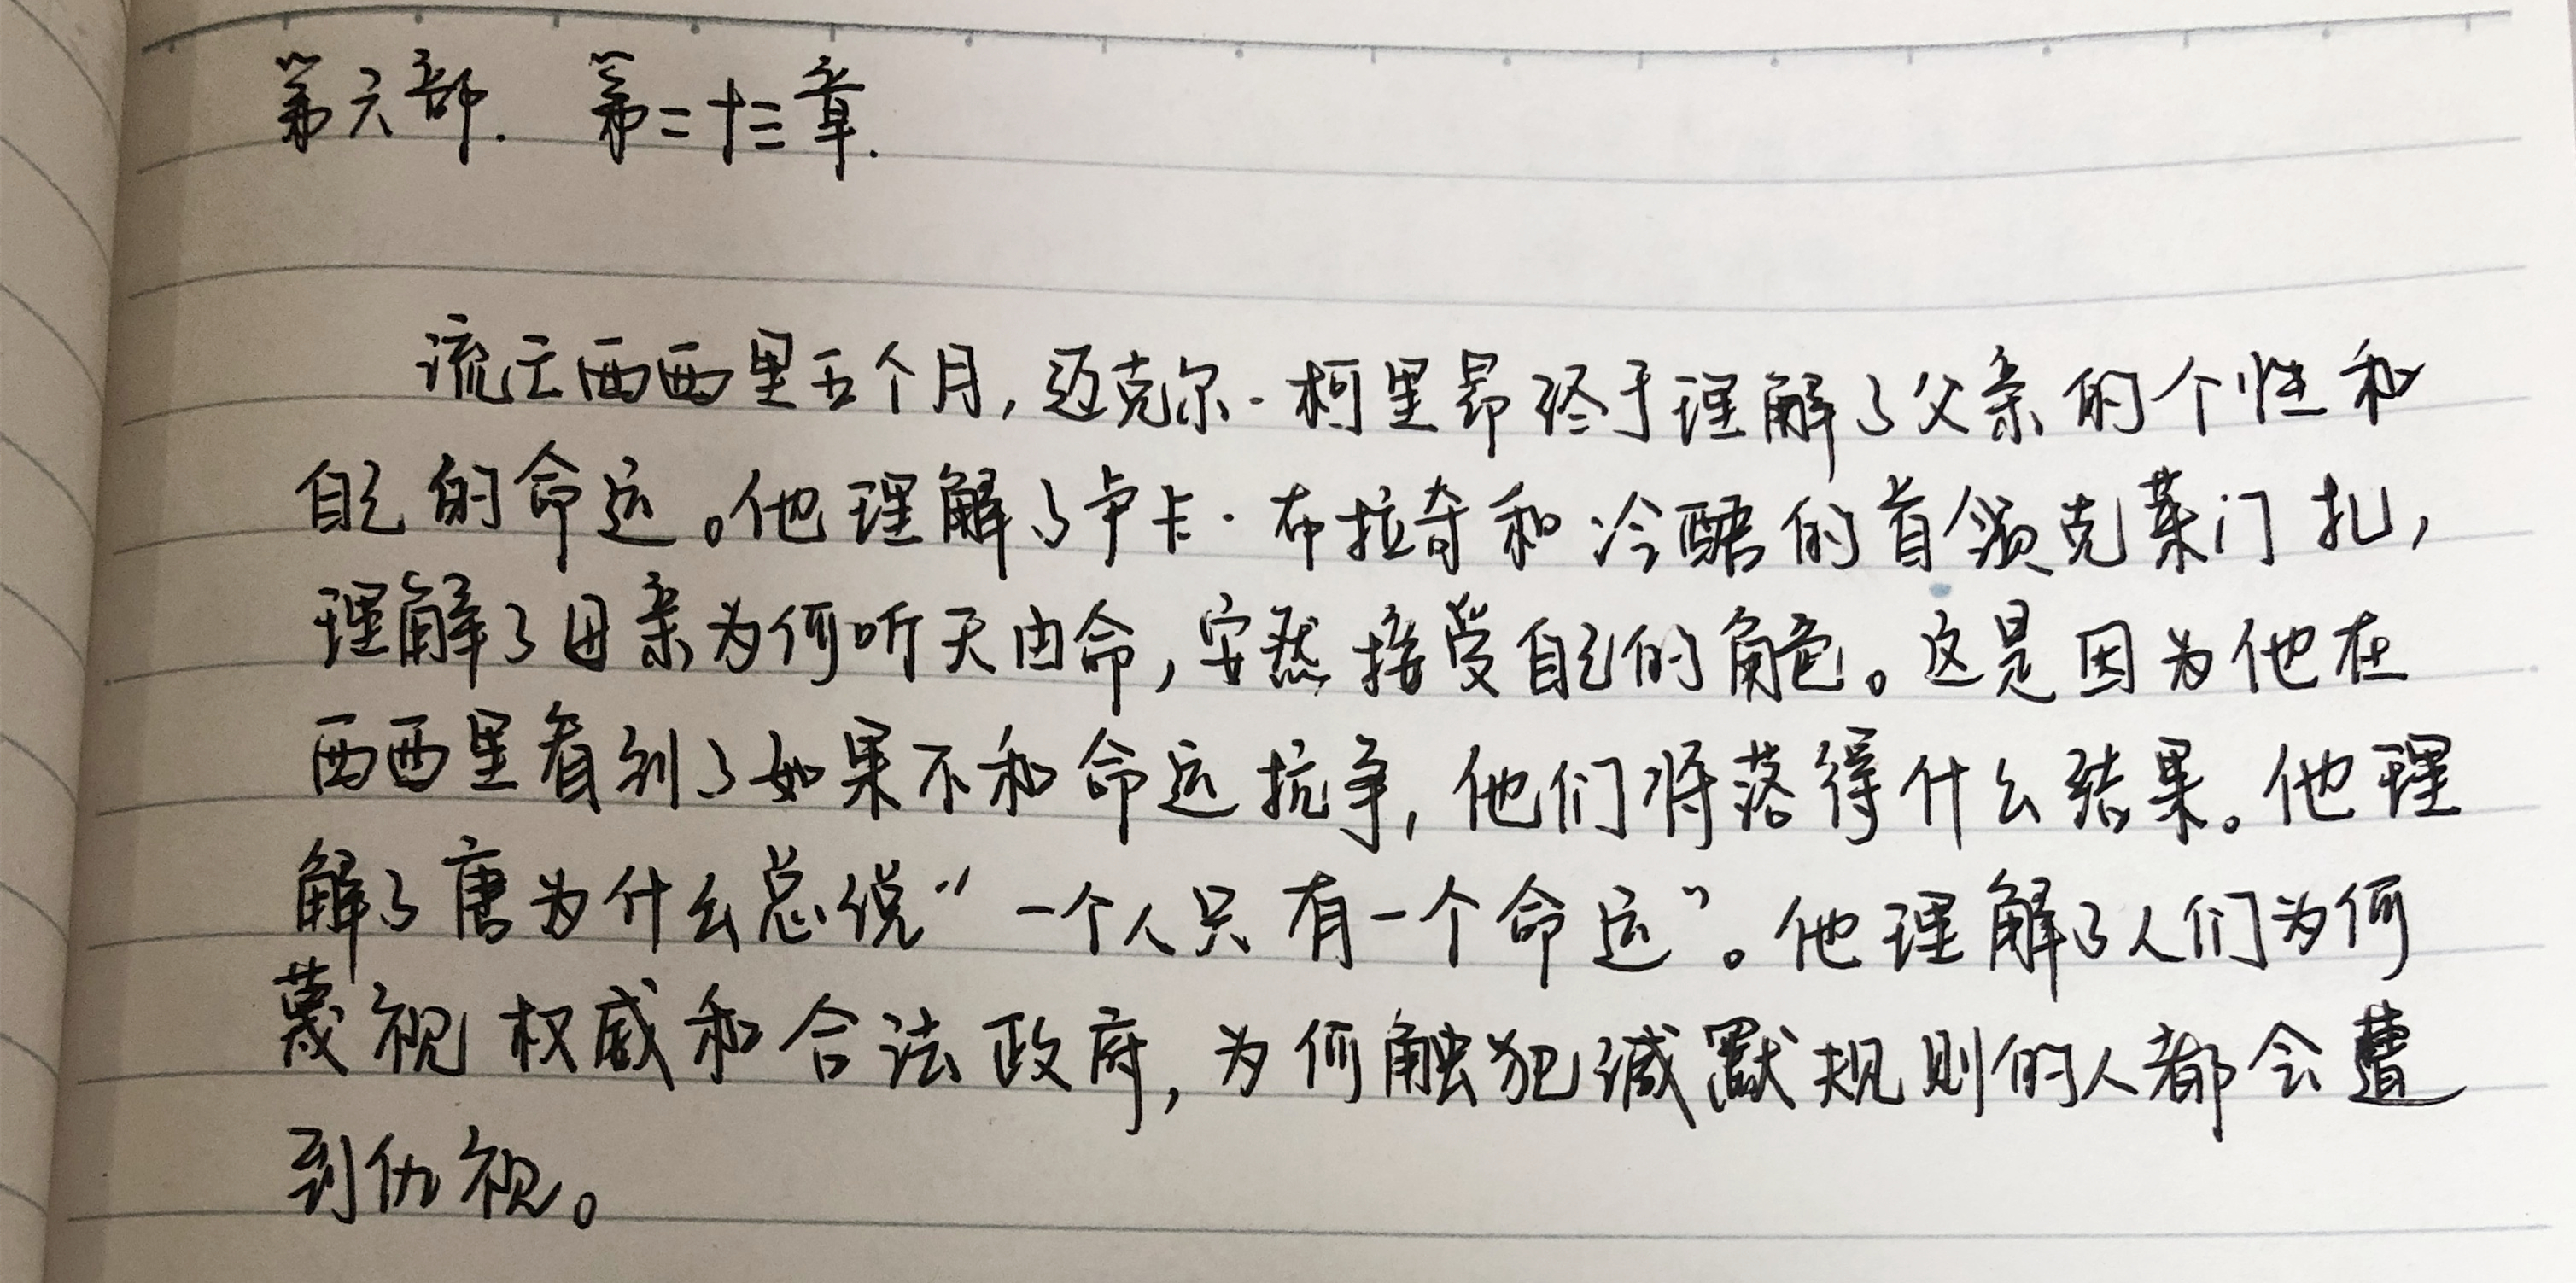 第六部. 第二十三章.
流亡西西里五个月,迈克尔·柯里昂终于理解了父亲的个性和
自己的命运。他理解了卢卡·布拉奇和冷酷的首领克莱门扎,
理解了母亲为何听天由命,安然接受自己的角色。这是因为他在
西西里看到了如果不和命运抗争,他们将落得什么结果。他理
解了唐为什么总说“一个人只有一个命运”。他理解了人们为何
蔑视权威和合法政府,为何触犯缄默规则的人都会遭
到仇视。